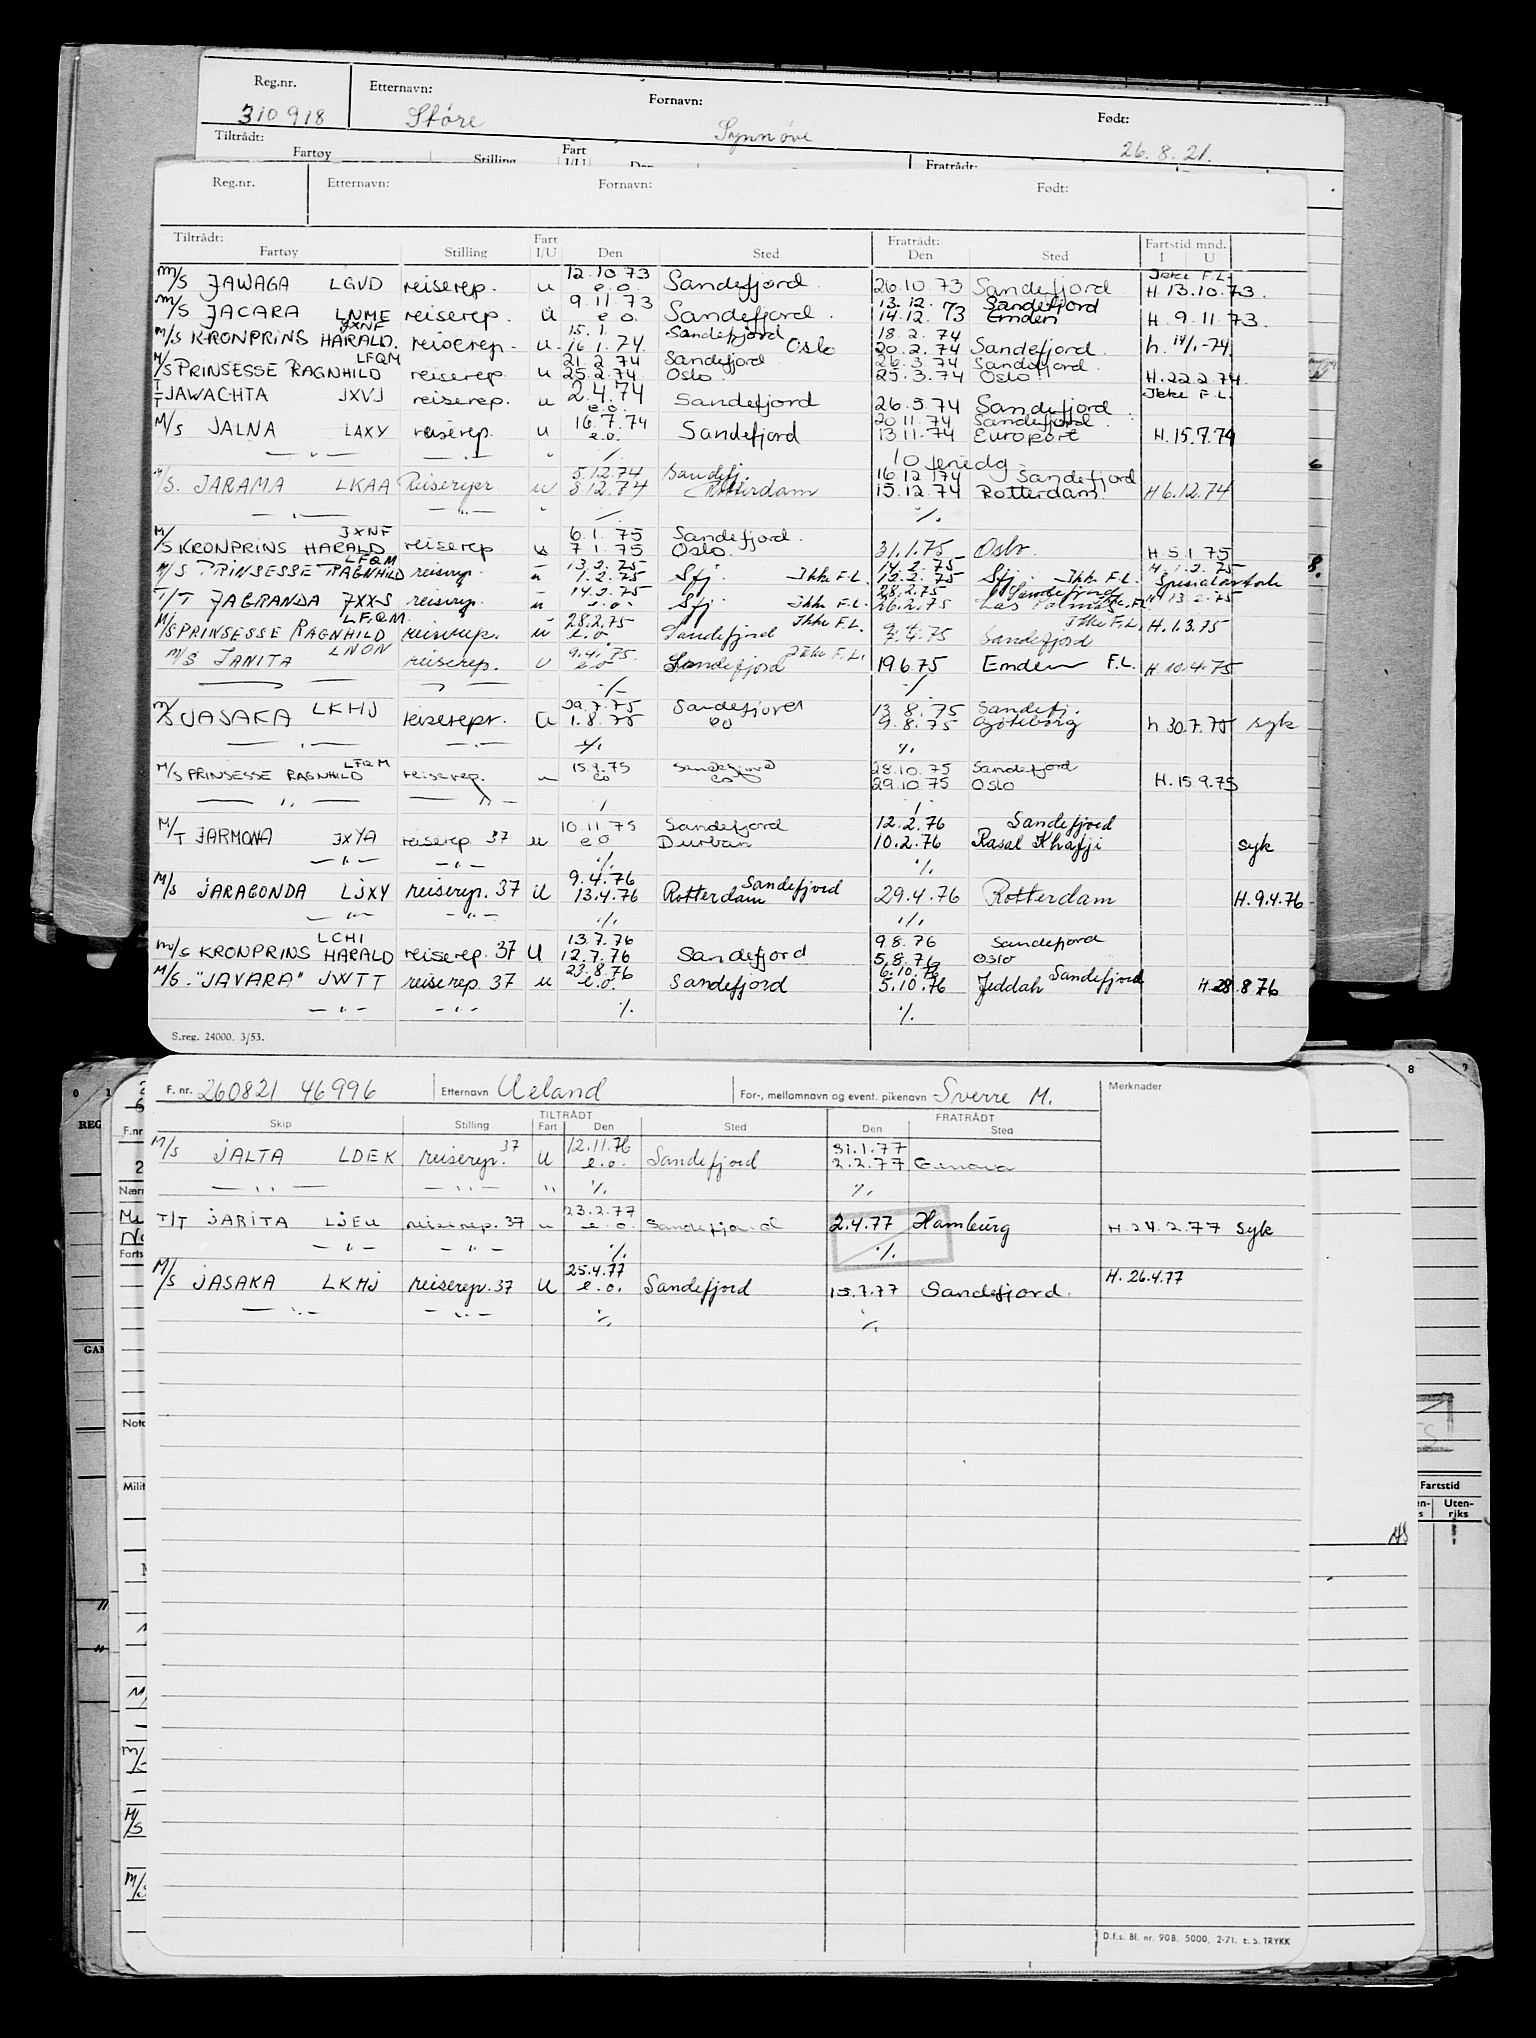 Reg.nr. Etternavn: Fornavn: Født:
310918 Støre Synnøve 26.8.21.
Tiltrådt: Fartøy Stilling Fart I/U Den Fratrådt:
Reg.nr. Etternavn: Fornavn: Født:
Tiltrådt: Fratrådt: Fartstid mnd.
Fartøy Stilling Fart I/U Den Sted Den Sted I U
12.10.73 Ikke F.L.
M/S JAWAGA LGVD reiserep. u e.o. Sandefjord 26.10.73 Sandefjord H.13.10.73.
9.11.73 13.12.73 Sandefjord
M/S JACARA LNME reiserep. u e.o. Sandefjord. 14.12.73 Emden H.9.11.73.
JXNF 15.1. Sandefjord 18.2.74
M/S KRONPRINS HARALD. reiserep. u 16.1.74 Oslo 20.2.74 Sandefjord. h.14/1-74
LFQM 21.2.74 Sandefjord 26.3.74 Sandefjord.
M/S PRINSESSE RAGNHILD reiserep. u 25.2.74 Oslo. 25.3.74 Oslo H.22.2.74.
2.4.74 Ikke F.L.
T/T JAWACHTA JXVJ reiserep. u e.o. Sandefjord 26.5.74 Sandefjord
16.7.74 20.11.74 Sandefjord.
M/S JALNA LAXY reiserep. u e.o. Sandefjord 13.11.74 Europort H.15.7.74
— " — — " — ./. 10 feriedg
5.12.74 Sandefj. 16.12.74 Sandefjord
M/S. JARAMA LKAA Reiserepr. u 8.12.74 Rotterdam 15.12.74 Rotterdam H 6.12.74
— " — — " — " ./. ./.
JXNF 6.1.75 Sandefjord.
M/S KRONPRINS HARALD reiserep u 7.1.75 Oslo. 31.1.75 Oslo. H.5.1.75
LFQM 13.2.75 14.2.75
M/S PRINSESSE RAGNHILD reiserep. u 1.2.75 Sfj. Ikke F.L. 12.2.75 Sfj. Ikke F.L.
14.2.75 28.2.75 Sandefjord
T/T JAGRANDA JXXS reiserep. u e.o. Sfj Ikke F.L. 26.2.75 Las Palmas H 13.2.75
LFQM. 28.2.75 Ikke F.L. Ikke F.L.
M/S PRINSESSE RAGNHILD reiserep. u e.o Sandefjord 75 Sandefjord H.1.3.75
LNON 9.4.75. Ikke F.L.
M/S JANITA reiserep. u e.o Sandefjord 19.6.75 Emden F.L. H 10.4.75
./. ./.
LKHJ 30.7.75 Sandefjord 13.8.75 Sandefj.
M/S JASAKA reiserepr. U 1.8.75 eo 9.8.75 Gøteborg h 30.7.75 syk
— " — — " — ./. ./.
LFQM 15.9.75 Sandefjord 28.10.75 Sandefjord
M/S PRINSESSE RAGNHILD reiserep. eo eo 29.10.75 Oslo H.15.9.75
— " — — " —
10.11.75 Sandefjord 12.2.76 Sandefjord
M/T JARMONA JXYA reiserep 37 u e o Durban 10.2.76 Rasal Khafji syk
— " — — " — ./. ./.
9.4.76 Sandefjord
M/S JARAGONDA LJXY reiserep. 37 U 13.4.76 Rotterdam 29.4.76 Rotterdam H.9.4.76
— " — — " — ./. ./.
LCHI 13.7.76 9.8.76 Sandefjord
M/S KRONPRINS HARALD reiserep. 37 U 12.7.76 Sandefjord 5.8.76 Oslo
23.8.76 6.10.76 Sandefjord
M/S. "JAVARA" JWTT reiserep. 37 u e.o. Sandefjord 5.10.76 Jeddah H.28.8 76
— " — — " — ./. ./.
S.reg. 24000. 3/53.
F. nr. 260821 46996 Etternavn Ueland For-, mellomnavn og event. pikenavn Sverre M. Merknader
TILTRÅDT FRATRÅDT
Skip Stilling Fart Den Sted Den Sted
12.11.76 31.1.77
M/S JALTA LDEK reiserep. 37 U e.o. Sandefjord 2.2.77 Genova
— " — — " — " ./. ./.
23.2.77
T/T JARITA LJEU reiserep. 37 u e.o. Sandefjord 2.4.77 Hamburg H.24.2.77 syk
— " — — " — ./. ./.
25.4.77 H. 26.4.77
M/S JASAKA LKHJ reiserep. 37 U e.o. Sandefjord 15.7.77 Sandefjord.
— " — — " — ./. ./.
Fartstid
Uten-
riks
D.f.s. Bl. nr. 90B. 5000. 2-71. E. S. TRYKK